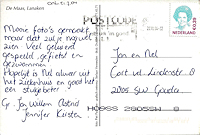 De Maas, Lanaken
Mooie foto's gemaakt
maar dat zul je nog wel
zien. Veel gewand
gespeeld, gefietst en
gezwommen.
Hopelijk is Nel alweer uit
het ziekenhuis en gaat het
een stuk beter
Gr. Jan Willem Astrid
Jennifer Kirsten
POSTCODE
NEDERLAND
Jan en Nel
2805 SW Gouda